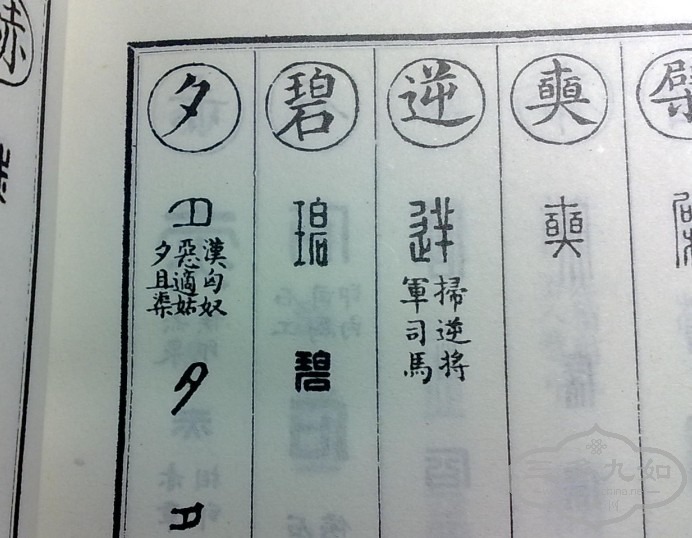 逆
逆
掃逆將
軍司馬
碧
碧
碧
夕
夕
漢匈奴
惡適姑
夕且渠
夕
夕
三 九如